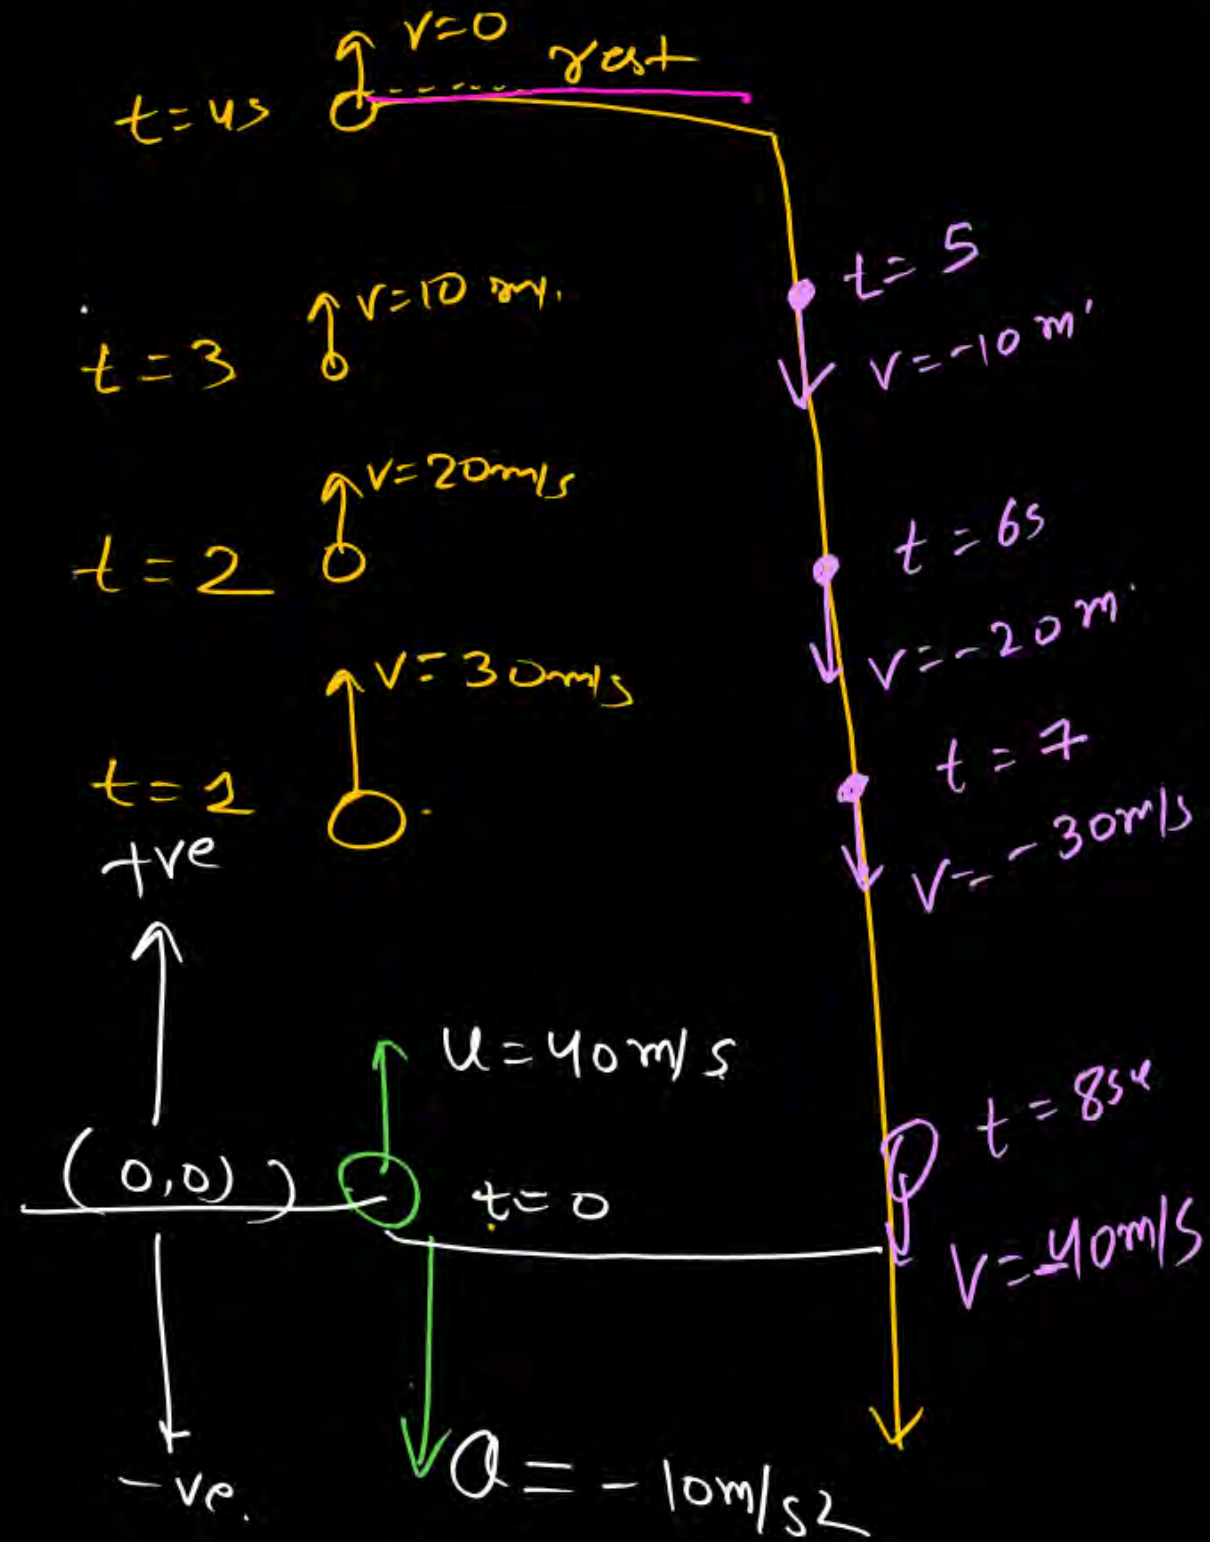 v=0
rest
t=4s
v=10 m/.
t=3
v=20m/s
t=2
v=30m/s
t=1
+ve
u=40m/s
(0,0)
t=0
-ve.
a=-10m/s2
t=5
v=-10m
t=6s
v=-20m
t=7
v=-30m/s
t=8se
v=-40m/s